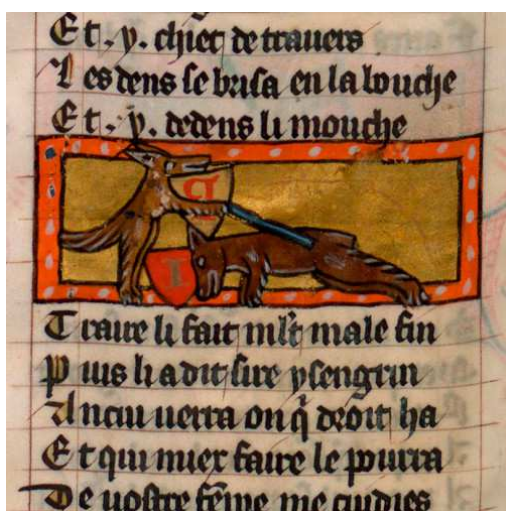 Et . y . chiet de trauers
Les dens se brisa en la bouche
Et . y . dedens li mouche
R
I
Traire li fait ml't male fin
Puis li a dit sire ysengrin
Ancui uerra on q̄ droit ha
Et qui miex faire le pourra
De uostre fēme me cuidies